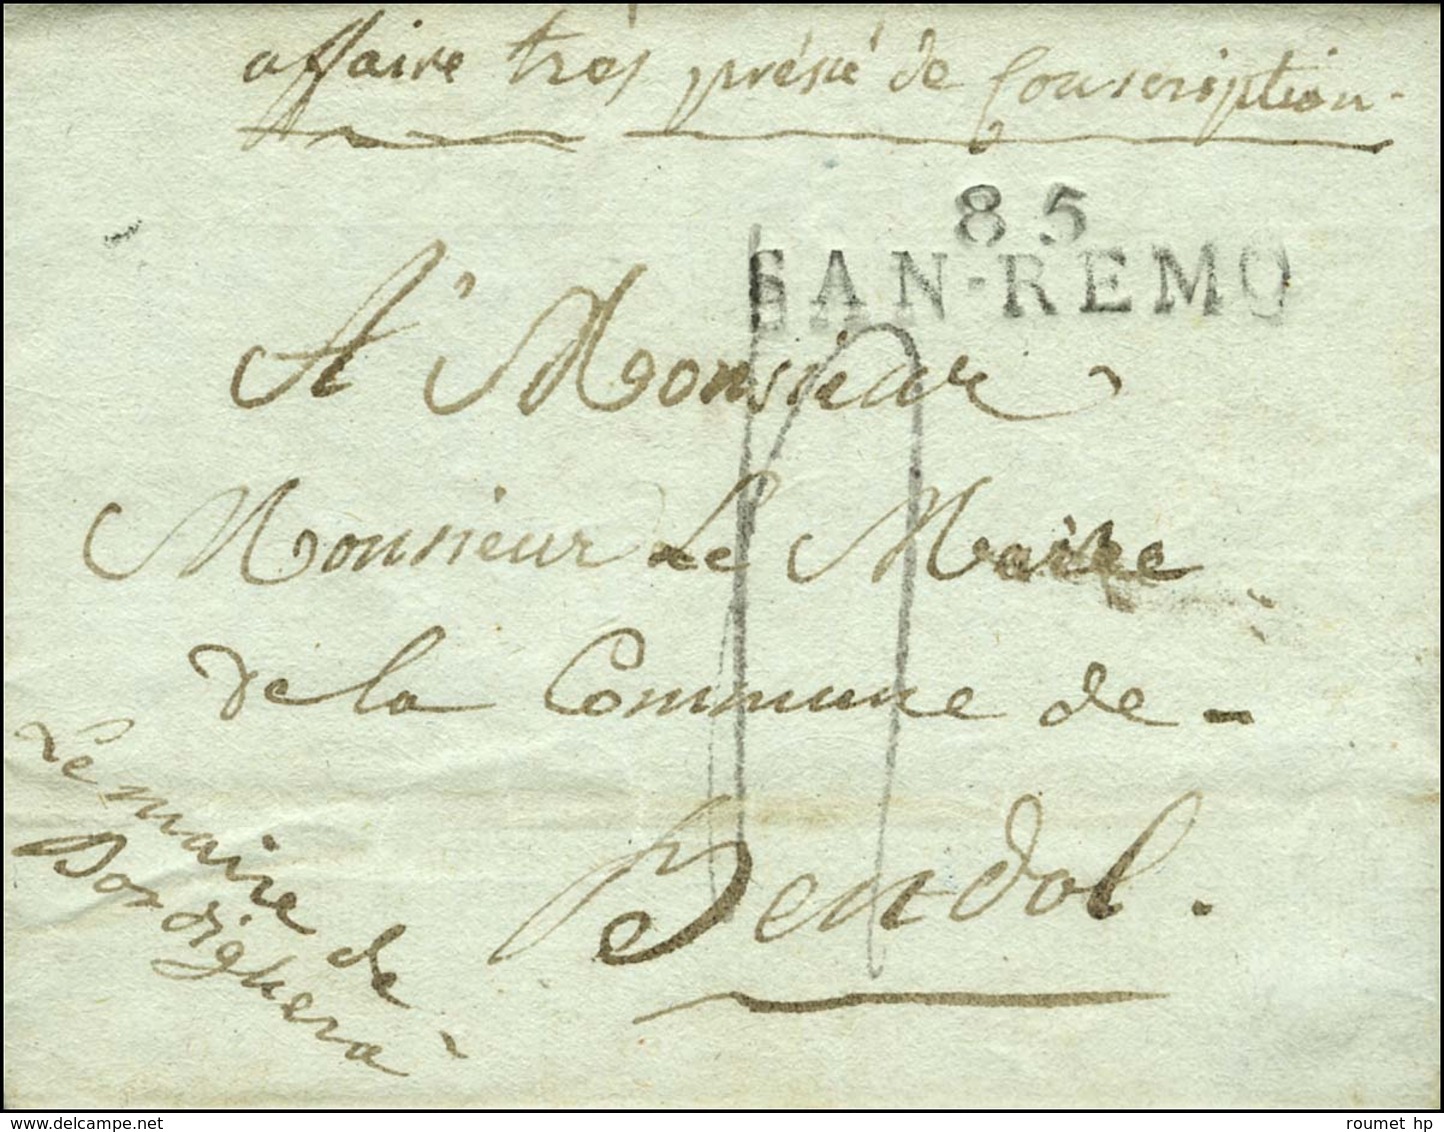 affaire tres présié de Conscription.
85
SAN-REMO
A' Monsieur
Monsieur Le Maire
de la Commune de -
Bendol.
Le maire de
Bordighera
roumet hp